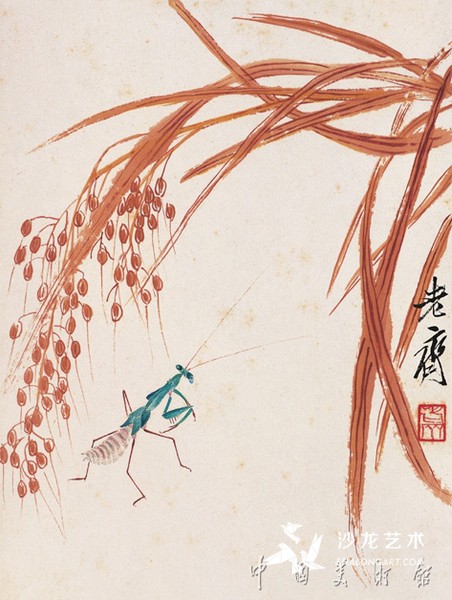 老齊
沙龙艺术
SHALONGART.COM
中国美術館